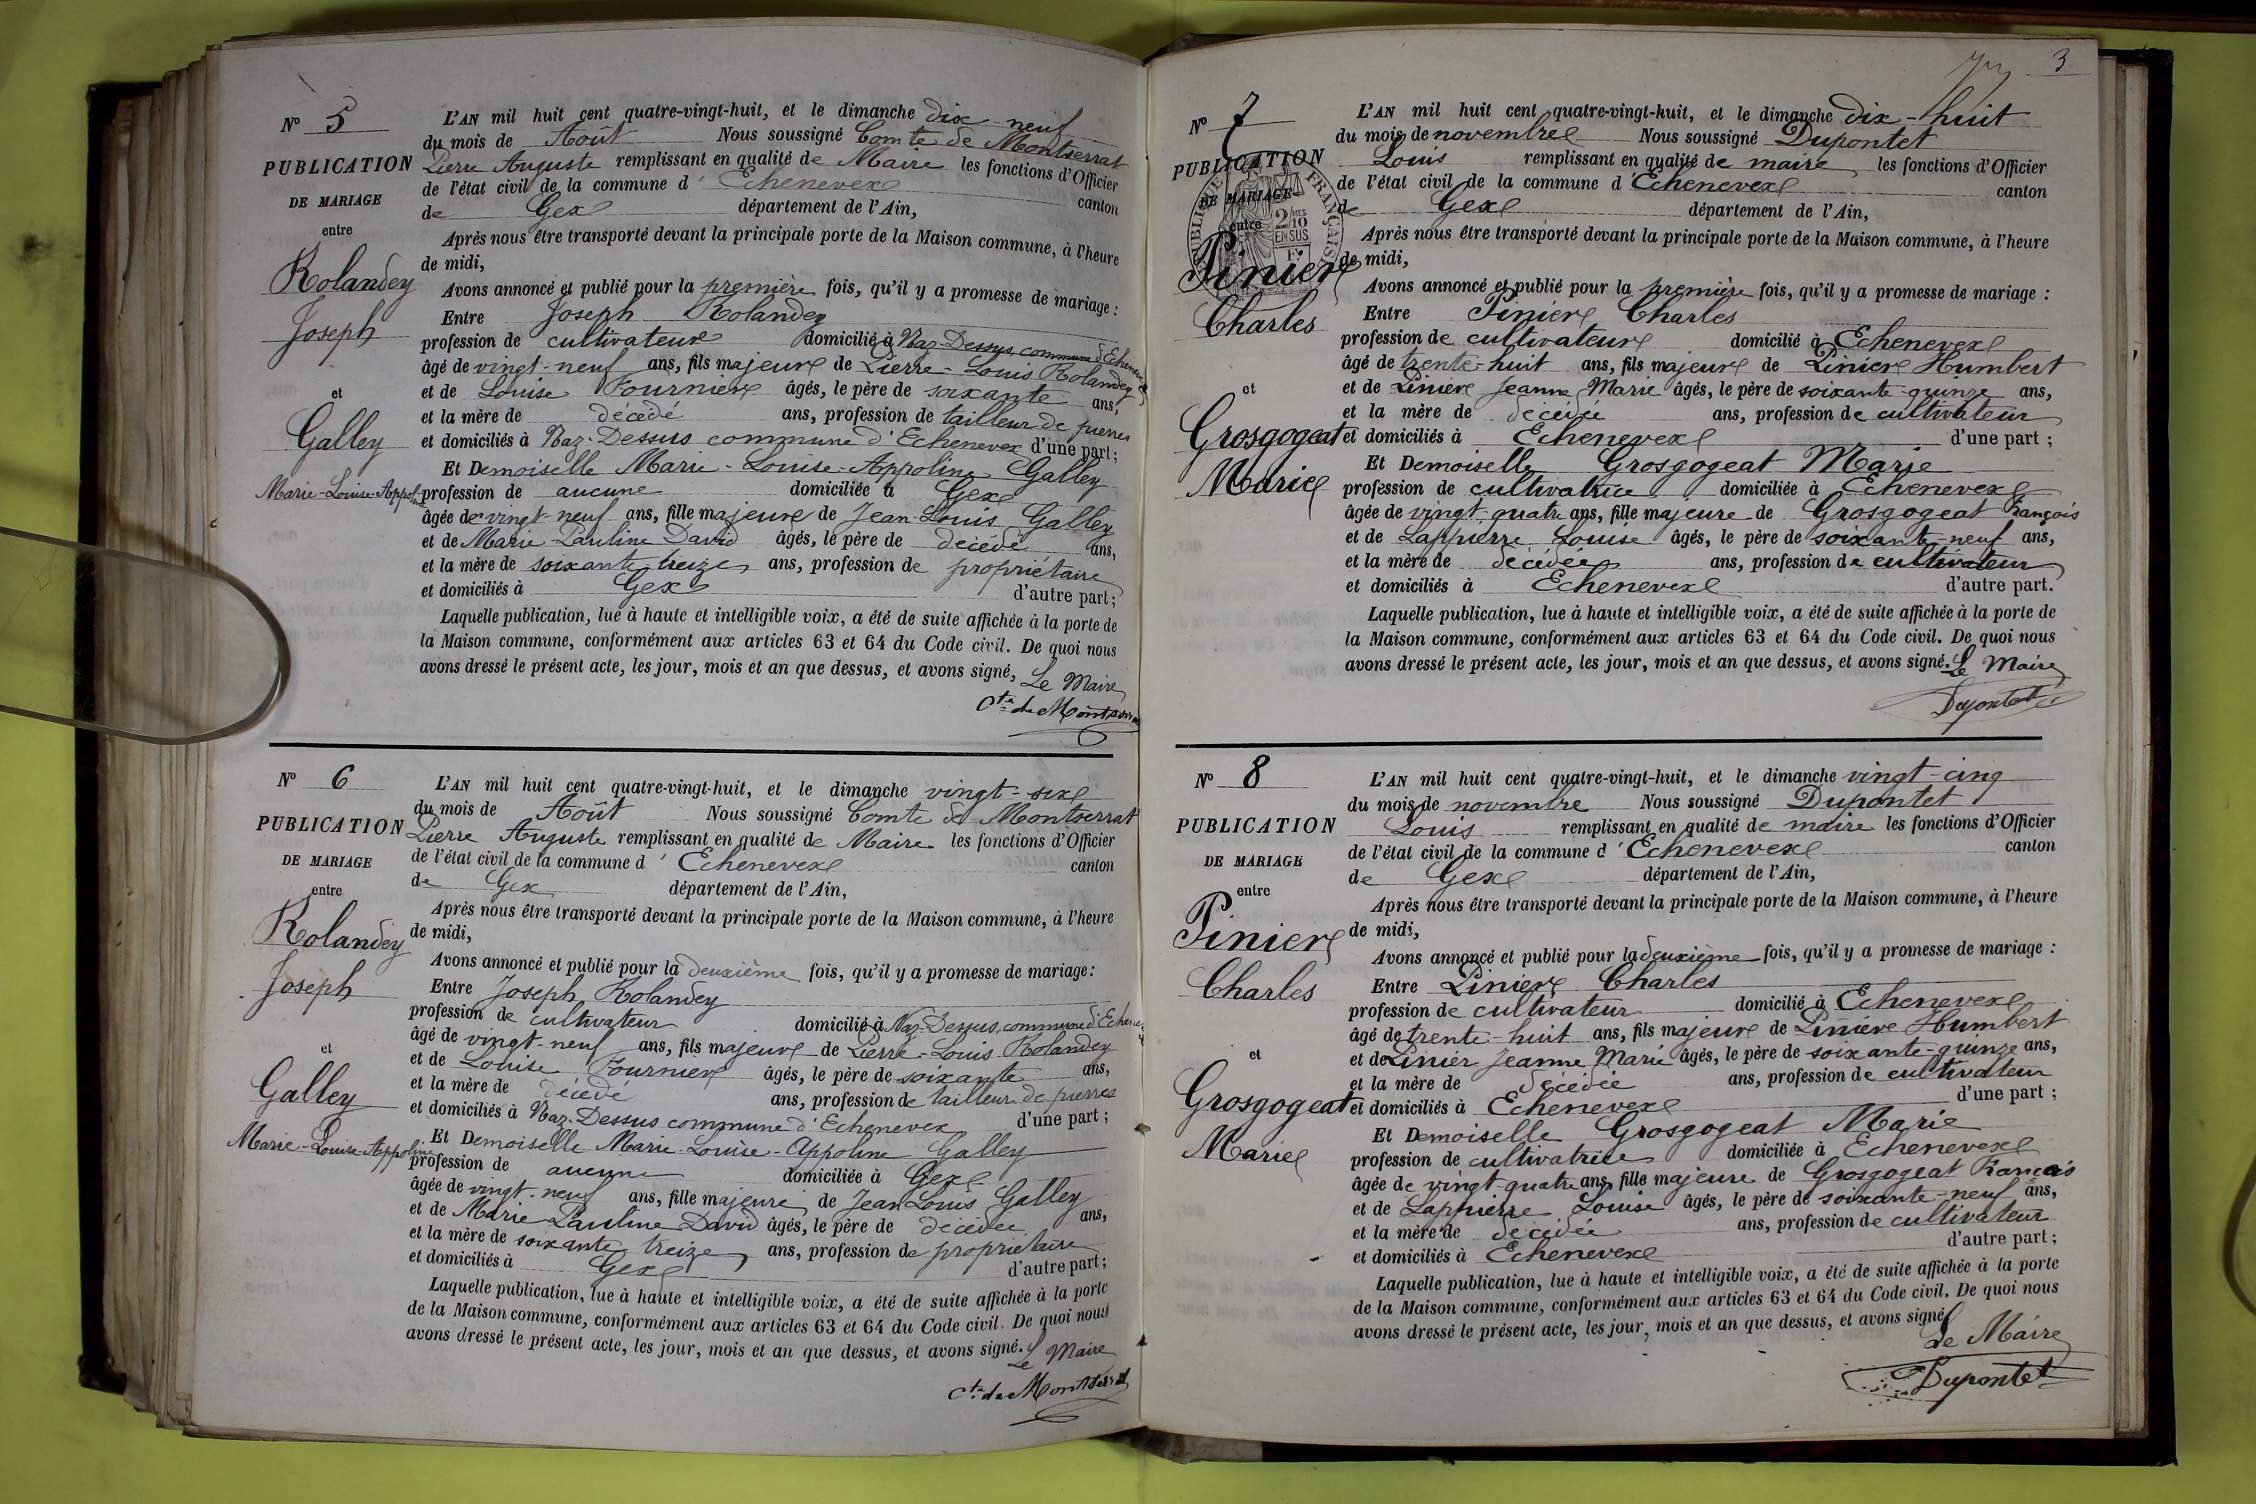 N° 5
PUBLICATION
DE MARIAGE
entre
Rolandey
Joseph
et
Galley
Marie-Louise-Appoline
L'AN mil huit cent quatre-vingt-huit, et le dimanche dix-neuf
du mois de Août Nous soussigné Comte de Montserrat
Pierre Auguste remplissant en qualité de Maire les fonctions d'Officier
de l'état civil de la commune d' Echenevex canton
de Gex département de l'Ain,
Après nous être transporté devant la principale porte de la Maison commune, à l'heure
de midi,
Avons annoncé et publié pour la première fois, qu'il y a promesse de mariage :
Entre Joseph Rolandey
profession de cultivateur domicilié à Naz-Dessus, commune d'Echenevex
âgé de vingt-neuf ans, fils majeur de Pierre-Louis Rolandey
et de Louise Fournier âgés, le père de soixante ans,
et la mère de décédé ans, profession de tailleur de pierres
et domiciliés à Naz-Dessus commune d'Echenevex d'une part;
Et Demoiselle Marie-Louise-Appoline Galley
profession de aucune domiciliée à Gex
âgée de vingt-neuf ans, fille majeure de Jean-Louis Galley
et de Marie-Pauline David âgés, le père de décédé ans,
et la mère de soixante treize ans, profession de propriétaire
et domiciliés à Gex d'autre part;
Laquelle publication, lue à haute et intelligible voix, a été de suite affichée à la porte de
la Maison commune, conformément aux articles 63 et 64 du Code civil. De quoi nous
avons dressé le présent acte, les jour, mois et an que dessus, et avons signé,
Le Maire
Cte de Montserrat
N° 6
PUBLICATION
DE MARIAGE
entre
Rolandey
Joseph
et
Galley
Marie-Louise-Appoline
L'AN mil huit cent quatre-vingt-huit, et le dimanche vingt-six
du mois de Août Nous soussigné Comte de Montserrat
Pierre Auguste remplissant en qualité de Maire les fonctions d'Officier
de l'état civil de la commune d' Echenevex canton
de Gex département de l'Ain,
Après nous être transporté devant la principale porte de la Maison commune, à l'heure
de midi,
Avons annoncé et publié pour la deuxième fois, qu'il y a promesse de mariage:
Entre Joseph Rolandey
profession de cultivateur domicilié à Naz-Dessus, commune d'Echenevex
âgé de vingt-neuf ans, fils majeur de Pierre-Louis Rolandey
et de Louise Fournier âgés, le père de soixante ans,
et la mère de décédé ans, profession de tailleur de pierres
et domiciliés à Naz-Dessus commune d'Echenevex d'une part;
Et Demoiselle Marie-Louise-Appoline Galley
profession de aucune domiciliée à Gex
âgée de vingt-neuf ans, fille majeure de Jean Louis Galley
et de Marie Pauline David âgés, le père de décédée ans,
et la mère de soixante treize, ans, profession de propriétaire
et domiciliés à Gex d'autre part;
Laquelle publication, lue à haute et intelligible voix, a été de suite affichée à la porte
de la Maison commune, conformément aux articles 63 et 64 du Code civil. De quoi nous
avons dressé le présent acte, les jour, mois et an que dessus, et avons signé.
Le Maire
Cte de Montserrat
3
N° 7
PUBLICATION
DE MARIAGE
entre
Pinier
Charles
et
Grosgogeat
Marie
RÉPUBLIQUE FRANÇAISE
2/10 EN SUS
L'AN mil huit cent quatre-vingt-huit, et le dimanche dix-huit
du mois de novembre Nous soussigné Dupontet
Louis remplissant en qualité de maire les fonctions d'Officier
de l'état civil de la commune d'Echenevex canton
de Gex département de l'Ain,
Après nous être transporté devant la principale porte de la Maison commune, à l'heure
de midi,
Avons annoncé et publié pour la première fois, qu'il y a promesse de mariage :
Entre Pinier Charles
profession de cultivateur domicilié à Echenevex
âgé de trente-huit ans, fils majeur de Pinier Humbert
et de Pinier Jeanne Marie âgés, le père de soixante-quinze ans,
et la mère de décédée ans, profession de cultivateur
et domiciliés à Echenevex d'une part ;
Et Demoiselle Grosgogeat Marie
profession de cultivatrice domiciliée à Echenevex
âgée de vingt-quatre ans, fille majeure de Grosgogeat François
et de Lappierre Louise âgés, le père de soixante-neuf ans,
et la mère de décédée ans, profession de cultivateur
et domiciliés à Echenevex d'autre part.
Laquelle publication, lue à haute et intelligible voix, a été de suite affichée à la porte de
la Maison commune, conformément aux articles 63 et 64 du Code civil. De quoi nous
avons dressé le présent acte, les jour, mois et an que dessus, et avons signé.
Le Maire
Dupontet
N° 8
PUBLICATION
DE MARIAGE
entre
Pinier
Charles
et
Grosgogeat
Marie
L'AN mil huit cent quatre-vingt-huit, et le dimanche vingt-cinq
du mois de novembre Nous soussigné Dupontet
Louis remplissant en qualité de maire les fonctions d'Officier
de l'état civil de la commune d'Echenevex canton
de Gex département de l'Ain,
Après nous être transporté devant la principale porte de la Maison commune, à l'heure
de midi,
Avons annoncé et publié pour la deuxième fois, qu'il y a promesse de mariage :
Entre Pinier Charles
profession de cultivateur domicilié à Echenevex
âgé de trente-huit ans, fils majeur de Pinier Humbert
et de Pinier Jeanne Marie âgés, le père de soixante-quinze ans,
et la mère de décédée ans, profession de cultivateur
et domiciliés à Echenevex d'une part ;
Et Demoiselle Grosgogeat Marie
profession de cultivatrice domiciliée à Echenevex
âgée de vingt-quatre ans, fille majeure de Grosgogeat François
et de Lappierre Louise âgés, le père de soixante-neuf ans,
et la mère de décédée ans, profession de cultivateur
et domiciliés à Echenevex d'autre part ;
Laquelle publication, lue à haute et intelligible voix, a été de suite affichée à la porte
de la Maison commune, conformément aux articles 63 et 64 du Code civil. De quoi nous
avons dressé le présent acte, les jour, mois et an que dessus, et avons signé
Le Maire
Dupontet